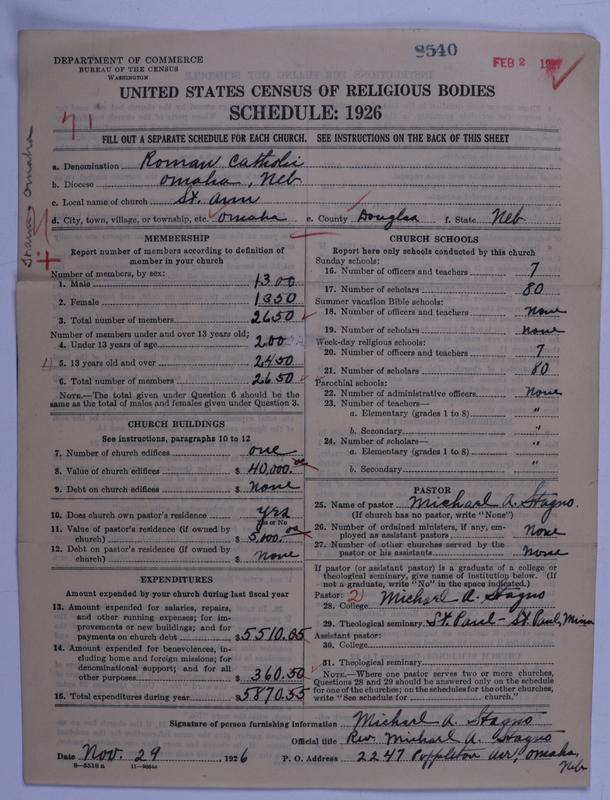 DEPARTMENT OF COMMERCE
BUREAU OF THE CENSUS
WASHINGTON
8540
FEB 2 1927
UNITED STATES CENSUS OF RELIGIOUS BODIES
SCHEDULE: 1926
71
FILL OUT A SEPARATE SCHEDULE FOR EACH CHURCH. SEE INSTRUCTIONS ON THE BACK OF THIS SHEET
a. Denomination Roman Catholic
b. Diocese Omaha, Neb
c. Local name of church St. Ann
d. City, town, village, or township, etc. Omaha e. County Douglas f. State Neb
MEMBERSHIP
Report number of members according to definition of
member in your church
Number of members, by sex:
1. Male 1300
2. Female 1350
3. Total number of members 2650
Number of members under and over 13 years old;
4. Under 13 years of age 200
5. 13 years old and over 2450
6. Total number of members 2650
NOTE.—The total given under Question 6 should be the
same as the total of males and females given under Question 3.
CHURCH BUILDINGS
See instructions, paragraphs 10 to 12
7. Number of church edifices one
8. Value of church edifices $ 40,000.00
9. Debt on church edifices $ None
10. Does church own pastor's residence yes
Yes or No
11. Value of pastor's residence (if owned by
church) $ 5,000.00
12. Debt on pastor's residence (if owned by
church) $ None
EXPENDITURES
Amount expended by your church during last fiscal year
13. Amount expended for salaries, repairs,
and other running expenses; for im-
provements or new buildings; and for
payments on church debt $ 5510.05
14. Amount expended for benevolences, in-
cluding home and foreign missions; for
denominational support; and for all
other purposes $ 360.50
15. Total expenditures during year $ 5870.55
CHURCH SCHOOLS
Report here only schools conducted by this church
Sunday schools:
16. Number of officers and teachers 7
17. Number of scholars 80
Summer vacation Bible schools:
18. Number of officers and teachers None
19. Number of scholars None
Week-day religious schools:
20. Number of officers and teachers 7
21. Number of scholars 80
Parochial schools:
22. Number of administrative officers None
23. Number of teachers—
a. Elementary (grades 1 to 8) "
b. Secondary "
24. Number of scholars—
a. Elementary (grades 1 to 8) "
b. Secondary "
PASTOR
25. Name of pastor Michael A. Stagno.
(If church has no pastor, write "None")
26. Number of ordained ministers, if any, em-
ployed as assistant pastors None
27. Number of other churches served by the
pastor or his assistants None
If pastor (or assistant pastor) is a graduate of a college or
theological seminary, give name of institution below. (If
not a graduate, write "No" in the space indicated.)
Pastor: 2
28. College Michael A. Stagno
29. Theological seminary St. Paul - St. Paul, Minn
Assistant pastor:
30. College
31. Theological seminary
NOTE.—Where one pastor serves two or more churches,
Questions 28 and 29 should be answered only on the schedule
for one of the churches; on the schedules for the other churches,
write "See schedule for church."
Signature of person furnishing information Michael A. Stagno
Official title Rev. Michael A. Stagno
Date Nov. 29, 1926 P. O. Address 2247 Poppleton Av, Omaha,
Neb
8—5518a